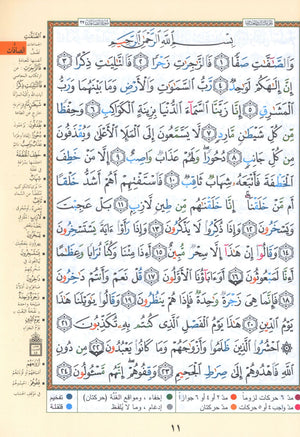 بِسْمِ ٱللَّهِ ٱلرَّحْمَٰنِ ٱلرَّحِيمِ
وَٱلصَّٰٓفَّٰتِ صَفًّا ١ فَٱلزَّٰجِرَٰتِ زَجْرًا ٢ فَٱلتَّٰلِيَٰتِ ذِكْرًا ٣
إِنَّ إِلَٰهَكُمْ لَوَٰحِدٌ ٤ رَّبُّ ٱلسَّمَٰوَٰتِ وَٱلْأَرْضِ وَمَا بَيْنَهُمَا وَرَبُّ
ٱلْمَشَٰرِقِ ٥ إِنَّا زَيَّنَّا ٱلسَّمَآءَ ٱلدُّنْيَا بِزِينَةٍ ٱلْكَوَاكِبِ ٦ وَحِفْظًا
مِّن كُلِّ شَيْطَٰنٍ مَّارِدٍ ٧ لَّا يَسَّمَّعُونَ إِلَى ٱلْمَلَإِ ٱلْأَعْلَىٰ وَيُقْذَفُونَ
مِن كُلِّ جَانِبٍ ٨ دُحُورًا وَلَهُمْ عَذَابٌ وَاصِبٌ ٩ إِلَّا مَنْ خَطِفَ
ٱلْخَطْفَةَ فَأَتْبَعَهُۥ شِهَابٌ ثَاقِبٌ ١٠ فَٱسْتَفْتِهِمْ أَهُمْ أَشَدُّ خَلْقًا
أَم مَّنْ خَلَقْنَآ إِنَّا خَلَقْنَٰهُم مِّن طِينٍ لَّازِبٍۭ ١١ بَلْ عَجِبْتَ
وَيَسْخَرُونَ ١٢ وَإِذَا ذُكِّرُوا۟ لَا يَذْكُرُونَ ١٣ وَإِذَا رَأَوْا۟ ءَايَةً يَسْتَسْخِرُونَ
١٤ وَقَالُوٓا۟ إِنْ هَٰذَآ إِلَّا سِحْرٌ مُّبِينٌ ١٥ أَءِذَا مِتْنَا وَكُنَّا تُرَابًا وَعِظَٰمًا
أَءِنَّا لَمَبْعُوثُونَ ١٦ أَوَءَابَآؤُنَا ٱلْأَوَّلُونَ ١٧ قُلْ نَعَمْ وَأَنتُمْ دَٰخِرُونَ
١٨ فَإِنَّمَا هِىَ زَجْرَةٌ وَٰحِدَةٌ فَإِذَا هُمْ يَنظُرُونَ ١٩ وَقَالُوا۟ يَٰوَيْلَنَا هَٰذَا
يَوْمُ ٱلدِّينِ ٢٠ هَٰذَا يَوْمُ ٱلْفَصْلِ ٱلَّذِى كُنتُم بِهِۦ تُكَذِّبُونَ ٢١
ٱحْشُرُوا۟ ٱلَّذِينَ ظَلَمُوا۟ وَأَزْوَٰجَهُمْ وَمَا كَانُوا۟ يَعْبُدُونَ ٢٢ مِن دُونِ
ٱللَّهِ فَٱهْدُوهُمْ إِلَىٰ صِرَٰطِ ٱلْجَحِيمِ ٢٣ وَقِفُوهُمْ إِنَّهُم مَّسْـُٔولُونَ ٢٤
مدّ ٦ حركات لزوماً مدّ ٢ أو ٤ أو ٦ جوازاً إخفاء، ومواقع الغُنَّة (حركتان) تفخيم
مدّ واجب ٤ أو ٥ حركات مدّ حركتان إدغام، وما لا يُلفَظ قلقلة
١١